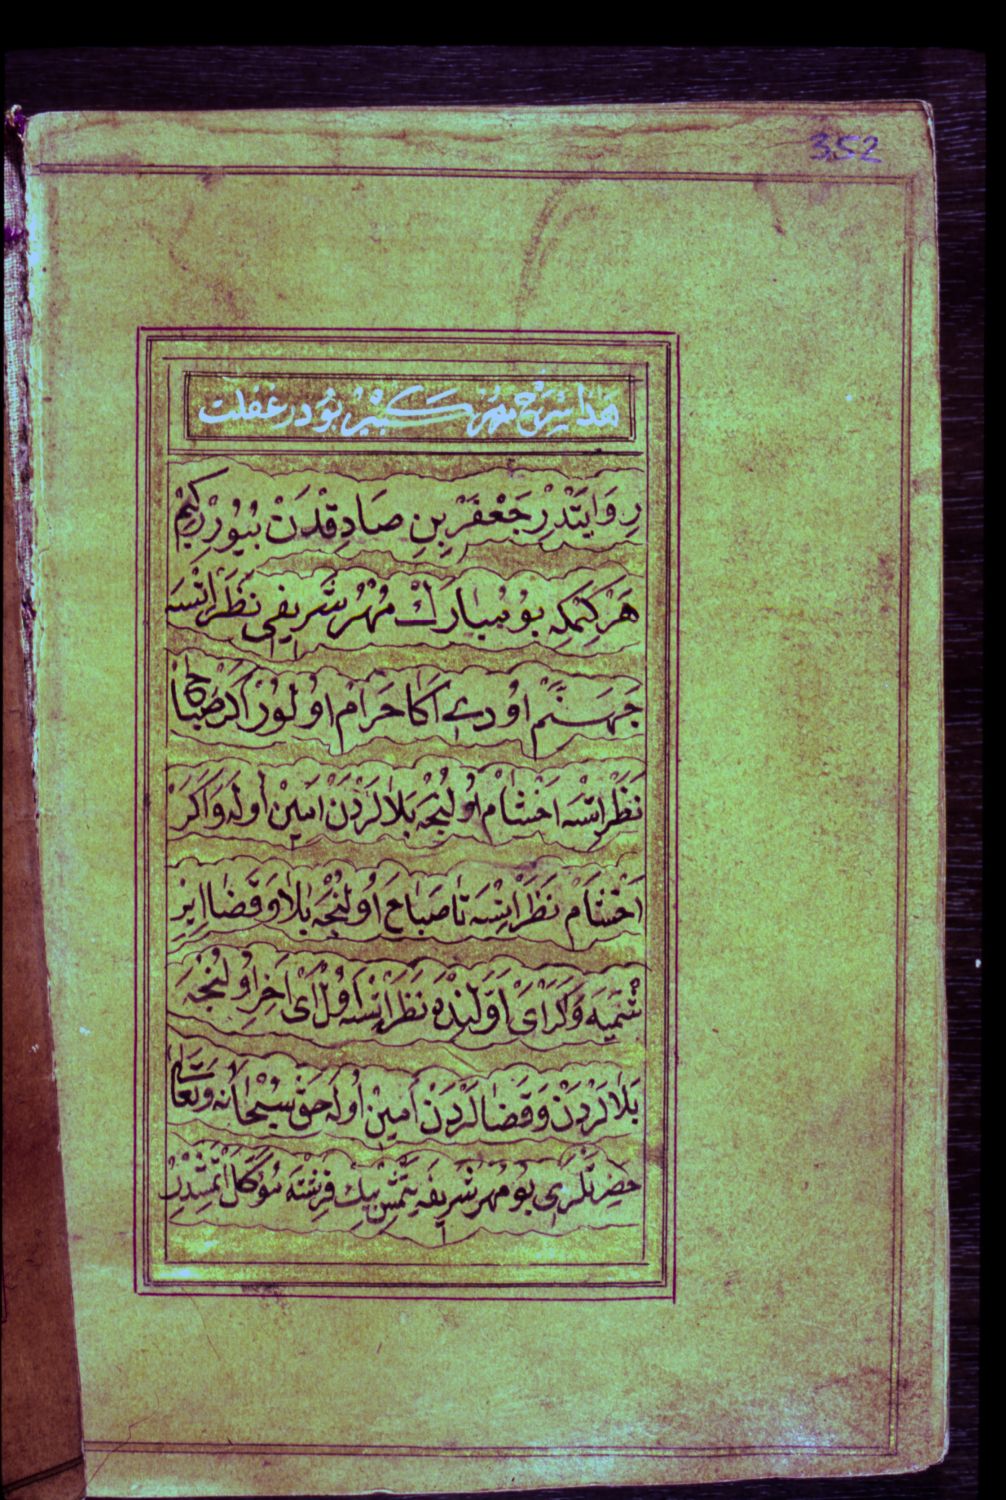 352
هذا شرح مهر كبير بودر غفلت
رِوَايَتْدِرْ جَعْفَرْ بِنِ صَادِقْدَنْ بُيُورِرْكِيمْ
هَرْ كِمْكِه بُو مُبَارَكْ مُهْرِ شَرِيفِى نَظَرْ اِتْسَه
جَهَنَّمْ اوُدى اَكَا حَرَامْ اوُلُورْ اَكَرْ صَبَاحْ
نَظَرْ اِتْسَه اَخْشَامْ اُولُنْجَه بَلَالَرْدَنْ اَمِينْ اُولَه وَاَكَرْ
اَخْشَامْ نَظَرْ اِتْسَه تَا صَبَاحْ اُولُنْجَه بَلَا وَقَضَا اِيرِ
شْمِيَه وَكَرْ آىْ اَوَّلِنْدَه نَظَرْ اِتْسَه اُولْ آىْ اَخِرْ اُولُنْجَه
بَلَالَرْدَنْ وَقَضَالَرْدَنْ اَمِينْ اُولَه حَقْ سُبْحَانَهُ وَتَعَالَى
حَضْرَتْلَرِى بُو مُهْرِ شَرِيفَه يَتْمِشْ بِيكْ فِرِشْتَه مُوَكَّلْ اِتْمِشْدِرْ